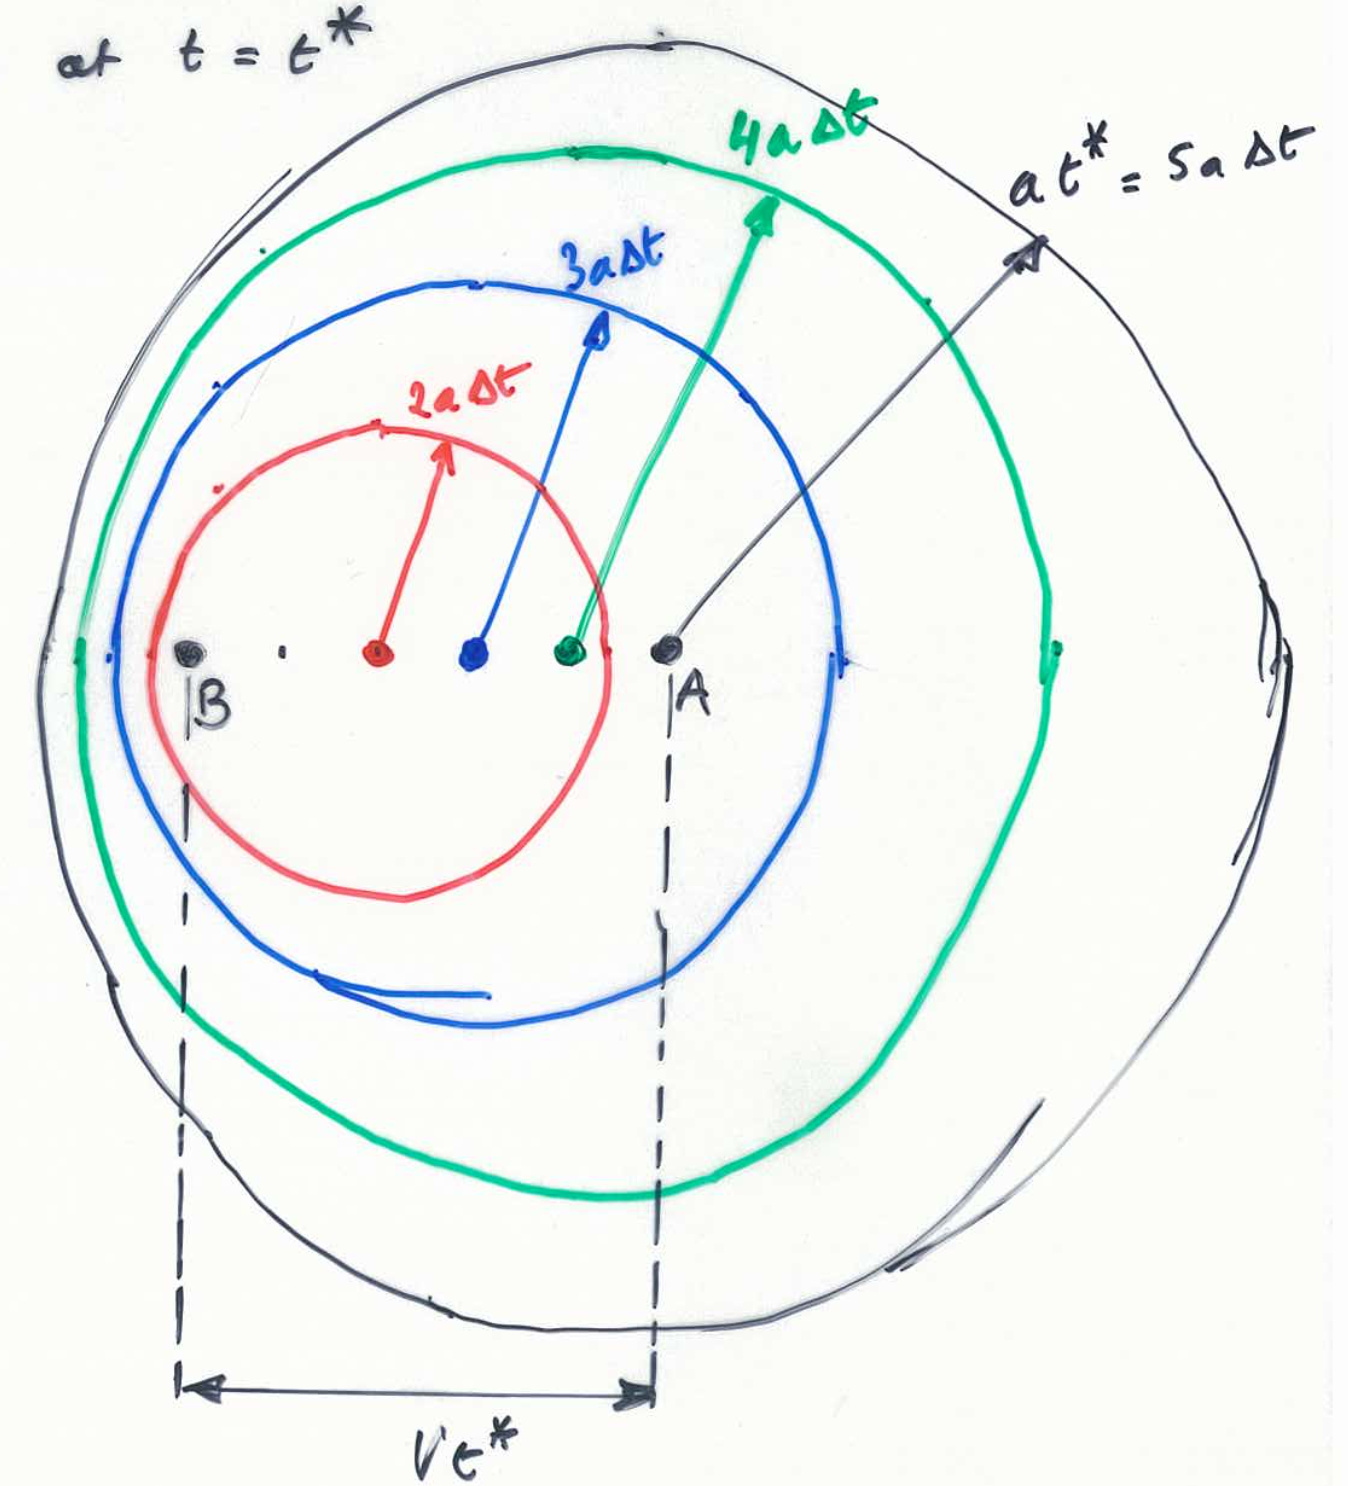 at t = t*
4aΔt
at* = 5aΔt
3aΔt
2aΔt
B
A
Vt*